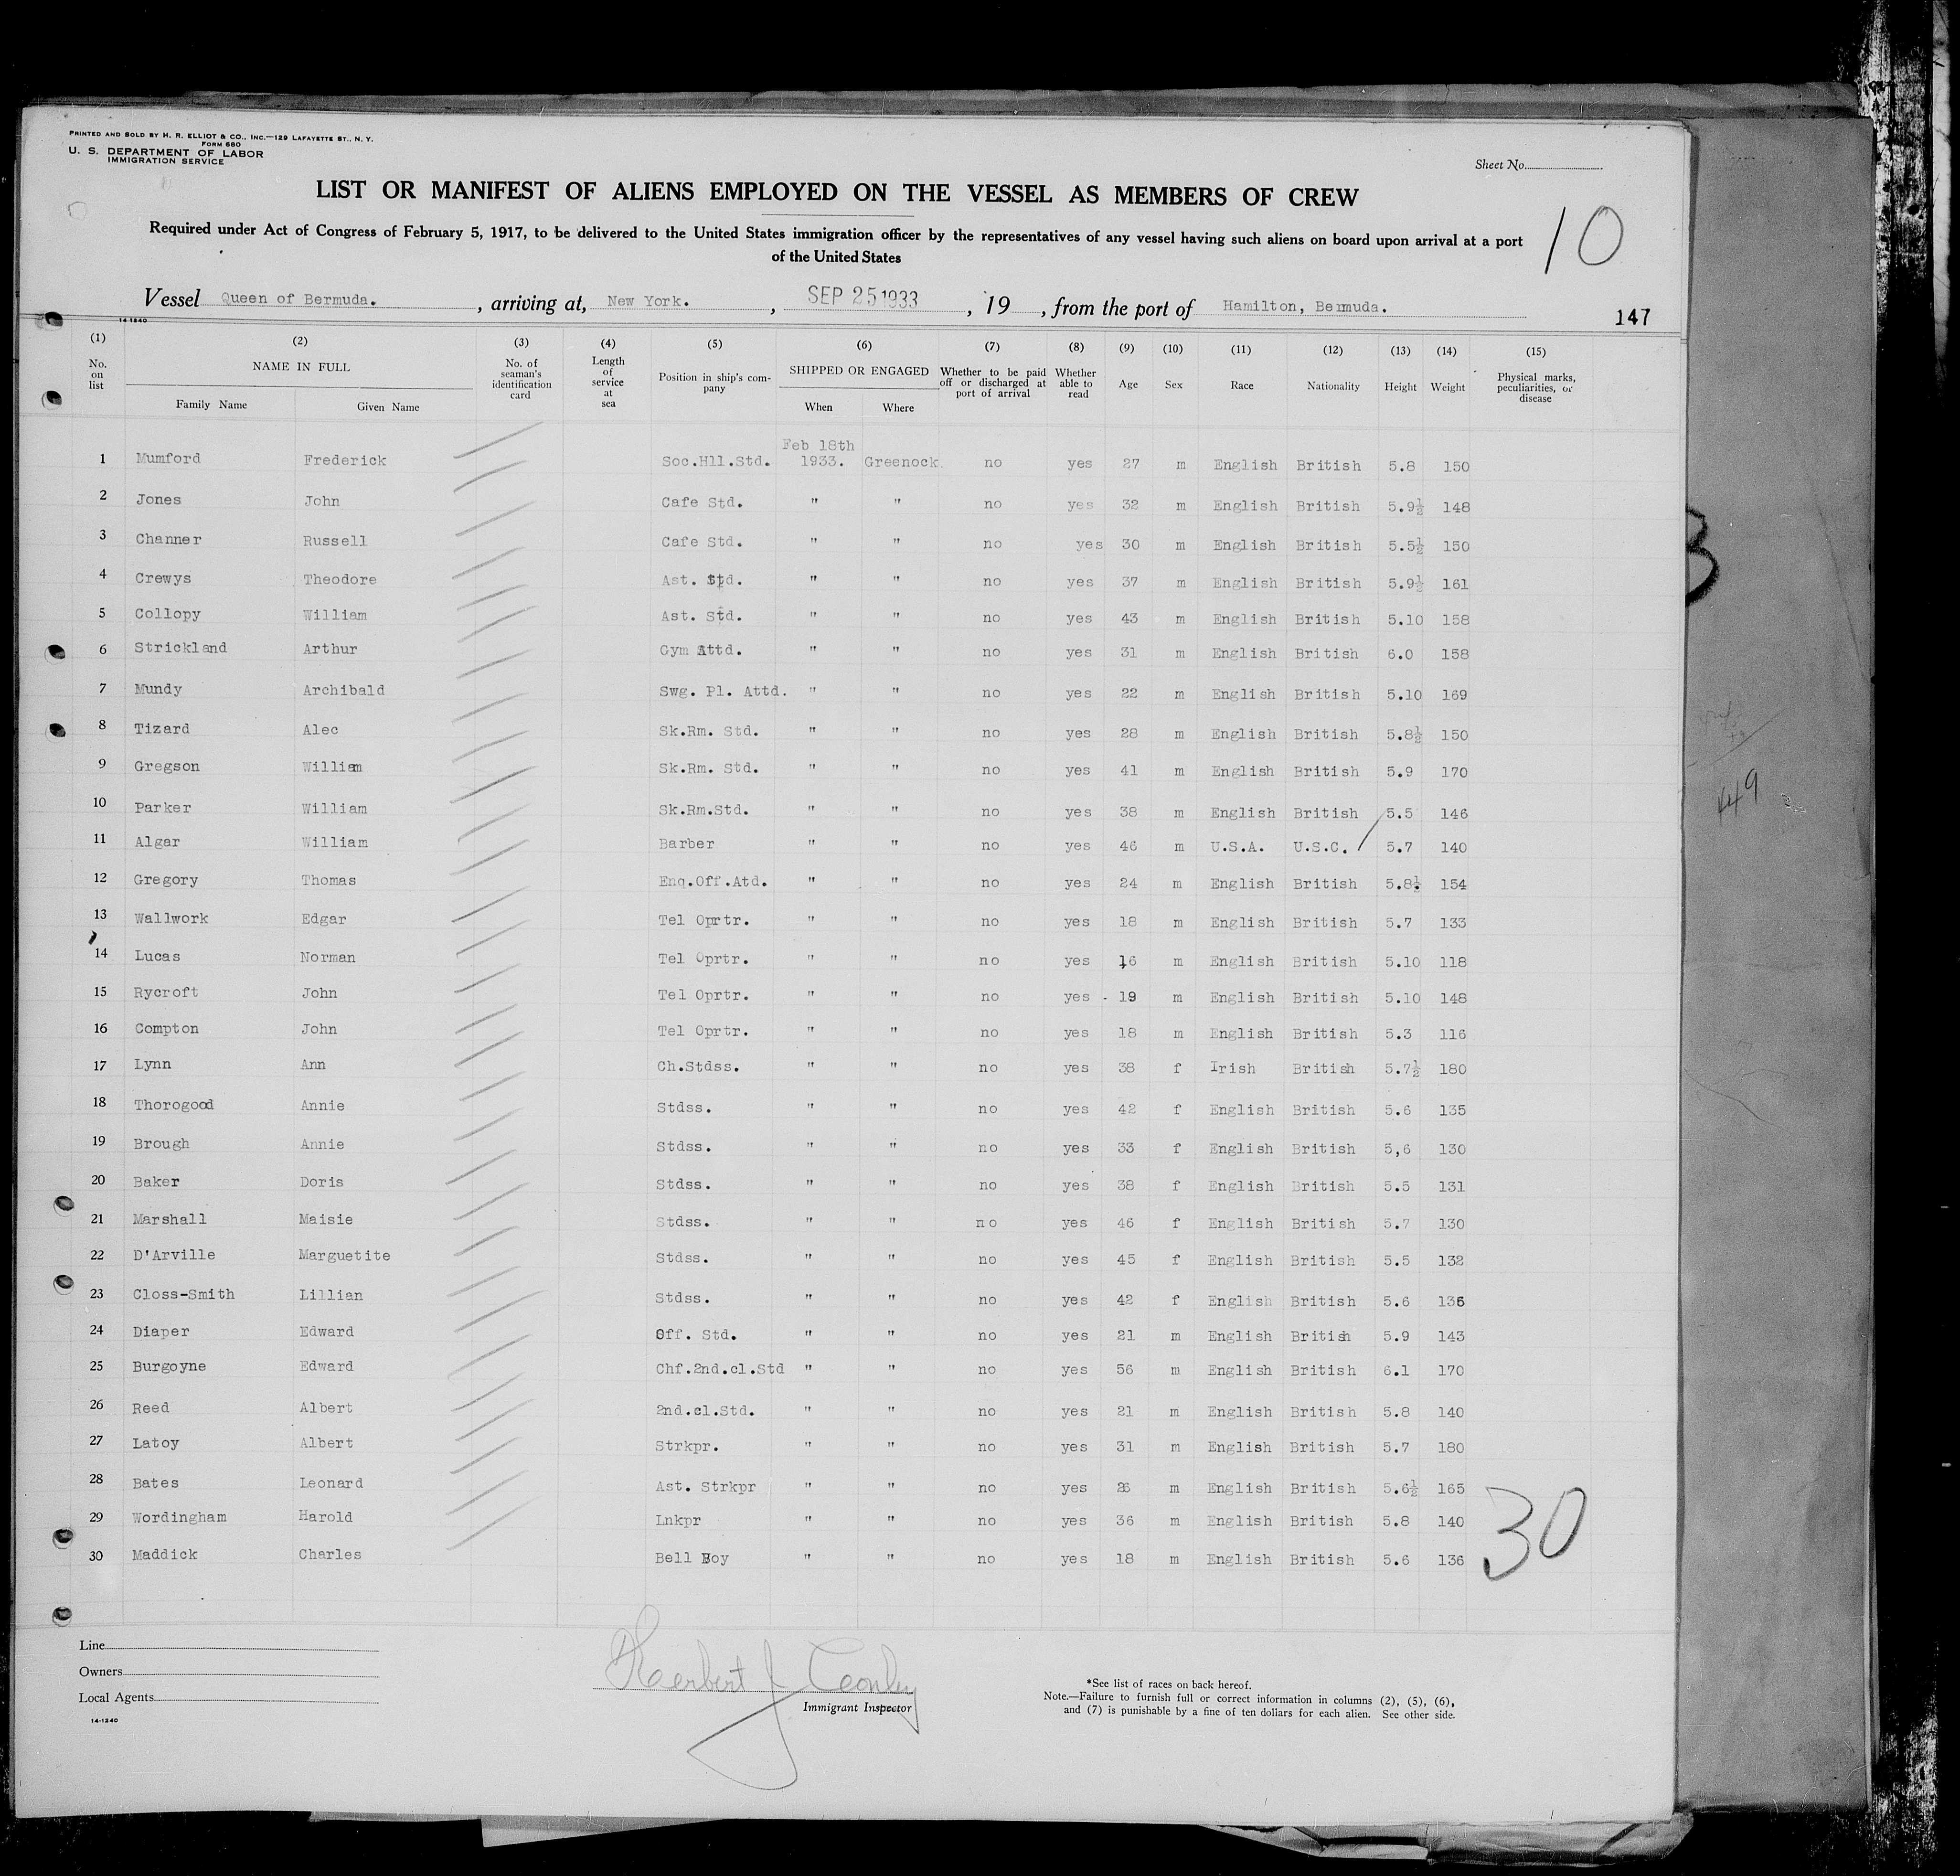 PRINTED AND SOLD BY H. R. ELLIOT & CO., INC.—129 LAFAYETTE ST., N. Y.
FORM 680
U. S. DEPARTMENT OF LABOR
IMMIGRATION SERVICE
Sheet No.
LIST OR MANIFEST OF ALIENS EMPLOYED ON THE VESSEL AS MEMBERS OF CREW
10
Required under Act of Congress of February 5, 1917, to be delivered to the United States immigration officer by the representatives of any vessel having such aliens on board upon arrival at a port
of the United States
Vessel Queen of Bermuda. , arriving at, New York. , SEP 25 1933 , 19 , from the port of Hamilton, Bermuda.
147
14-1240
(1) (2) (3) (4) (5) (6) (7) (8) (9) (10) (11) (12) (13) (14) (15)
No. on list NAME IN FULL Family Name Given Name No. of seaman's identification card Length of service at sea Position in ship's company SHIPPED OR ENGAGED When Where Whether to be paid off or discharged at port of arrival Whether able to read Age Sex Race Nationality Height Weight Physical marks, peculiarities, or disease
1 Mumford Frederick Soc.Hll.Std. Feb 18th 1933. Greenock. no yes 27 m English British 5.8 150
2 Jones John Cafe Std. " " no yes 32 m English British 5.9½ 148
3 Channer Russell Cafe Std. " " no yes 30 m English British 5.5½ 150
4 Crewys Theodore Ast. Std. " " no yes 37 m English British 5.9½ 161
5 Collopy William Ast. Std. " " no yes 43 m English British 5.10 158
6 Strickland Arthur Gym Attd. " " no yes 31 m English British 6.0 158
7 Mundy Archibald Swg. Pl. Attd. " " no yes 22 m English British 5.10 169
8 Tizard Alec Sk.Rm. Std. " " no yes 28 m English British 5.8½ 150
9 Gregson William Sk.Rm. Std. " " no yes 41 m English British 5.9 170
10 Parker William Sk.Rm.Std. " " no yes 38 m English British 5.5 146
11 Algar William Barber " " no yes 46 m U.S.A. U.S.C. 5.7 140
12 Gregory Thomas Enq.Off.Atd. " " no yes 24 m English British 5.8½ 154
13 Wallwork Edgar Tel Oprtr. " " no yes 18 m English British 5.7 133
14 Lucas Norman Tel Oprtr. " " no yes 16 m English British 5.10 118
15 Rycroft John Tel Oprtr. " " no yes 19 m English British 5.10 148
16 Compton John Tel Oprtr. " " no yes 18 m English British 5.3 116
17 Lynn Ann Ch.Stdss. " " no yes 38 f Irish British 5.7½ 180
18 Thorogood Annie Stdss. " " no yes 42 f English British 5.6 135
19 Brough Annie Stdss. " " no yes 33 f English British 5,6 130
20 Baker Doris Stdss. " " no yes 38 f English British 5.5 131
21 Marshall Maisie Stdss. " " no yes 46 f English British 5.7 130
22 D'Arville Marguetite Stdss. " " no yes 45 f English British 5.5 132
23 Closs-Smith Lillian Stdss. " " no yes 42 f English British 5.6 136
24 Diaper Edward Off. Std. " " no yes 21 m English British 5.9 143
25 Burgoyne Edward Chf.2nd.cl.Std " " no yes 56 m English British 6.1 170
26 Reed Albert 2nd.cl.Std. " " no yes 21 m English British 5.8 140
27 Latoy Albert Strkpr. " " no yes 31 m English British 5.7 180
28 Bates Leonard Ast. Strkpr " " no yes m English British 5.6½ 165
29 Wordingham Harold Lnkpr " " no yes 36 m English British 5.8 140
30 Maddick Charles Bell Boy " " no yes 18 m English British 5.6 136
30
Line
Owners
Local Agents
14-1240
Herbert J
Immigrant Inspector
*See list of races on back hereof.
Note.—Failure to furnish full or correct information in columns (2), (5), (6),
and (7) is punishable by a fine of ten dollars for each alien. See other side.